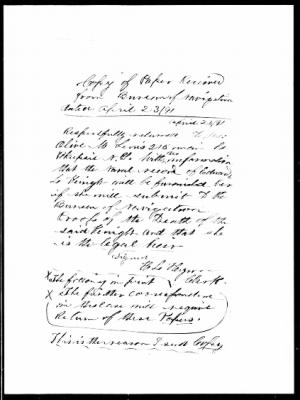 Copy of Paper Received
from Bureau of Navigation
dated April 23/91
April 23/91
Respectfully returned to Mrs
Olive M. 215 Main St
N.Y. with the information
that the naval record of Edward
will be furnished her
if she will submit to the
Bureau of Navigation
proofs of the Death of the
said and that she
is the legal heir
Signed
Clerk
X the fictions in print
X The further correspondence
in this case will require
Return of these Papers.
This is the reason I send Copy